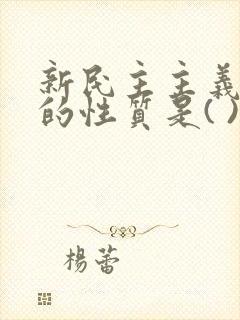 新民主主義
的性質是()
楊蕾